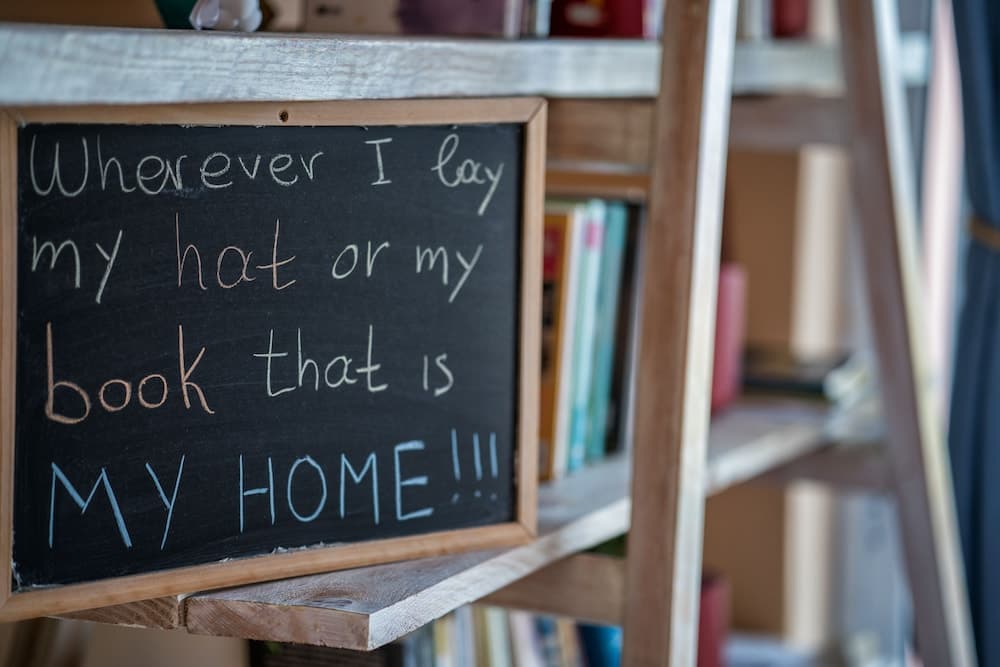 Wherever I lay
my hat or my
book that is
MY HOME!!!